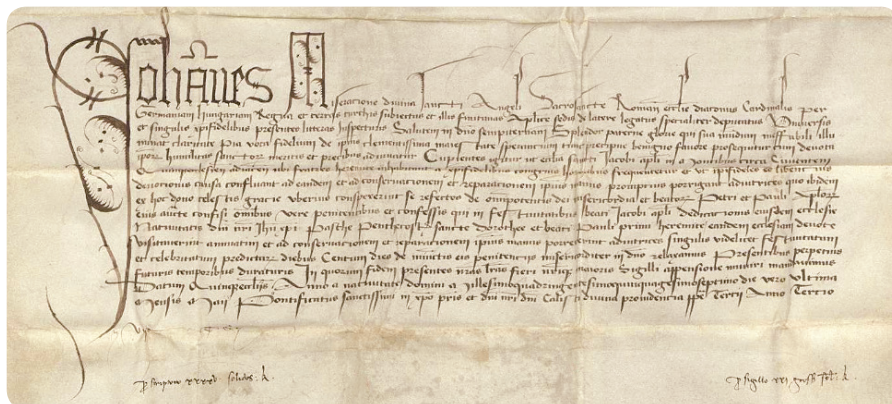 Johannes Miseracione divina Sancti Angeli Sacrosancte Romane ecclie diaconus Cardinalis Per
Germaniam Hungariam Regna et terras turchis subiectas et illis finitimas Aplice sedis de latere legatus specialiter deputatus Universis
et singulis xpifidelibus presentes litteras inspecturis Salutem in dno sempiternam Splendor paterne glorie qui sua mundum ineffabili illu
minat claritate pia vota fidelium de ipsius clementissima maiestate sperantium tunc precipue benigno favore prosequitur cum devota
ipsorum humilitas sanctorum meritis et precibus adiuvatur Cupientes igitur ut ecclia Sancti Jacobi apli
fratres heremite inhabitant a xpifidelibus congruis honoribus frequentetur et ut xpifideles eo libentius
devotionis causa confluant ad eandem et ad conservationem et reparationem ipius manus promptius porrigant adiutrices quo ibidem
ex hoc dono celestis gracie uberius conspexerint se refectos de omnipotentis dei misericordia et beatorum Petri et Pauli Aplorum
eius aucte confisi omnibus vere penitentibus et confessis qui in festivitatibus beati Jacobi apli dedicationis eiusdem ecclesie
Nativitatis dni nri Jhu xpi Pasche Penthecostes sancte Dorothee et beati Pauli primi heremite eandem ecclesiam devote
visitaverint annuatim et ad conservationem et reparationem ipius manus porrexerint adiutrices singulis videlicet festivitatum
et celebritatum predictarum diebus Centum dies de iniunctis eis penitenciis misericorditer in dno relaxamus Presentibus perpetuis
futuris temporibus duraturis In quorum fidem presentes nras lras fieri nrique maioris Sigilli appensione muniri mandavimus
Datum Quinqueecclijs Anno a nativitate domini Millesimoquadringentesimoquinquagesimoseptimo die vero ultima
Mensis Maij Pontificatus sanctissimi in xpo pris et dni nri dni Calisti divina providentia ppe Tertij Anno Tertio
p scriptura xxxx solidos
p sigillo xxi gross